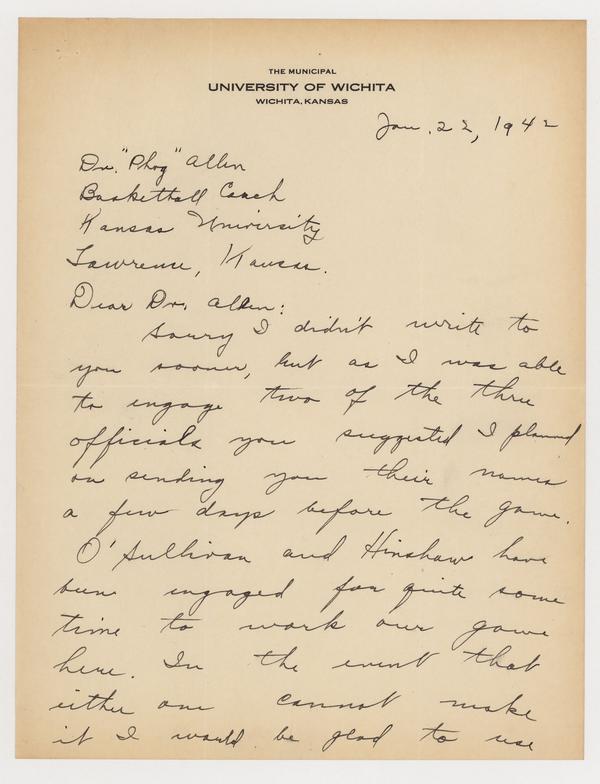 THE MUNICIPAL
UNIVERSITY OF WICHITA
WICHITA, KANSAS
Jan. 22, 1942
Dr. "Phog" Allen
Basketball Coach
Kansas University
Lawrence, Kansas.
Dear Dr. Allen:
Sorry I didn't write to
you sooner, but as I was able
to engage two of the three
officials you suggested I planned
on sending you their names
a few days before the game.
O'Sullivan and Hinshaw have
been engaged for quite some
time to work our game
here. In the event that
either one cannot make
it I would be glad to use